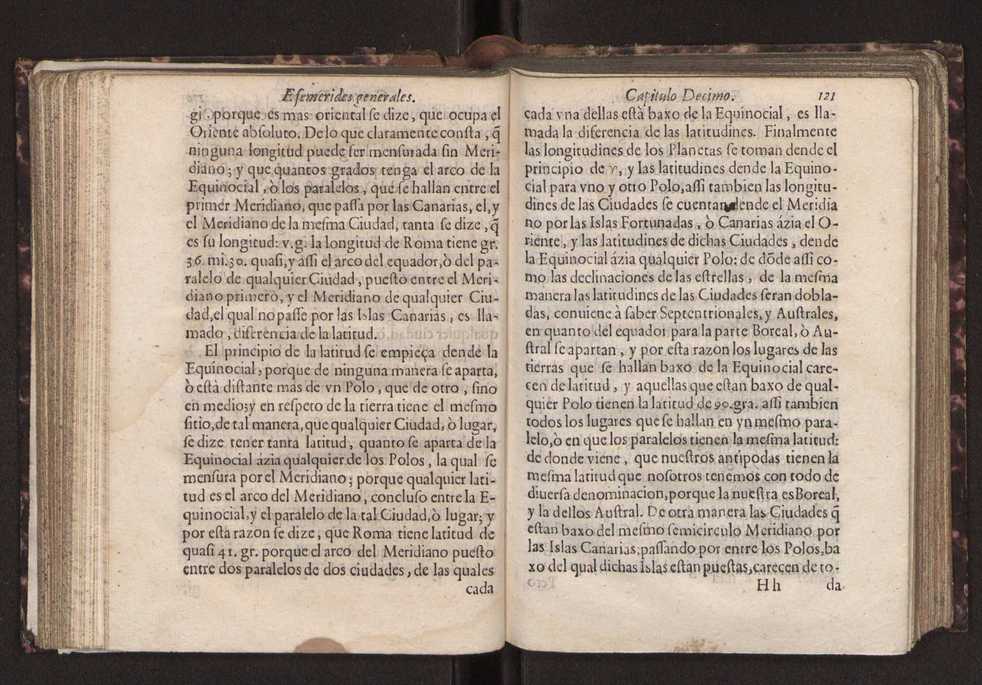 Efemerides generales.
gi, porque es mas oriental se dize, que ocupa el
Oriente absoluto. De lo que claramente consta, q̃
ninguna longitud puede ser mensurada sin Meri-
diano; y que quantos grados tenga el arco de la
Equinocial, ò los paralelos, que se hallan entre el
primer Meridiano, que passa por las Canarias, el, y
el Meridiano de la mesma Ciudad, tanta se dize, q̃
es su longitud: v.g. la longitud de Roma tiene gr.
36. mi. 30. quasi, y assi el arco del equador, ò del pa-
ralelo de qualquier Ciudad, puesto entre el Meri-
diano primero, y el Meridiano de qualquier Ciu-
dad, el qual no passe por las Islas Canarias, es lla-
mado, diferencia de la latitud.
El principio de la latitud se empieça dende la
Equinocial, porque de ninguna manera se aparta,
ò està distante mas de vn Polo, que de otro, sino
en medio; y en respeto de la tierra tiene el mesmo
sitio, de tal manera, que qualquier Ciudad, ò lugar,
se dize tener tanta latitud, quanto se aparta de la
Equinocial ázia qualquier de los Polos, la qual se
mensura por el Meridiano; porque qualquier lati-
tud es el arco del Meridiano, concluso entre la E-
quinocial, y el paralelo de la tal Ciudad, ò lugar; y
por esta razon se dize, que Roma tiene latitud de
quasi 41. gr. porque el arco del Meridiano puesto
entre dos paralelos de dos ciudades, de las quales
cada
Capitulo Decimo. 121
cada vna dellas està baxo de la Equinocial, es lla-
mada la diferencia de las latitudines. Finalmente
las longitudines de los Planetas se toman dende el
principio de ♈, y las latitudines dende la Equino-
cial para vno y otro Polo, assi tambien las longitu-
dines de las Ciudades se cuentan dende el Meridia
no por las Islas Fortunadas, ò Canarias ázia el O-
riente, y las latitudines de dichas Ciudades, dende
la Equinocial ázia qualquier Polo: de dõde assi co-
mo las declinaciones de las estrellas, de la mesma
manera las latitudines de las Ciudades seran dobla-
das, conuiene à saber Septentrionales, y Australes,
en quanto del equador para la parte Boreal, ò Au-
stral se apartan, y por esta razon los lugares de las
tierras que se hallan baxo de la Equinocial care-
cen de latitud, y aquellas que estan baxo de qual-
quier Polo tienen la latitud de 90. gra. assi tambien
todos los lugares que se hallan en vn mesmo para-
lelo, ò en que los paralelos tienen la mesma latitud:
de donde viene, que nuestros antipodas tienen la
mesma latitud que nosotros tenemos con todo de
diuersa denominacion, porque la nuestra es Boreal,
y la dellos Austral. De otra manera las Ciudades q̃
estan baxo del mesmo semicirculo Meridiano por
las Islas Canarias, passando por entre los Polos, ba
xo del qual dichas Islas estan puestas, carecen de to-
Hh da